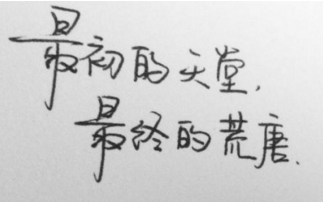 最初的天堂,
最终的荒唐.